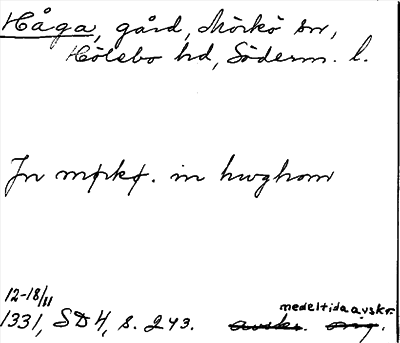 Håga, gård, Mörkö sn,
Hölebo hd, Söderm. l.
Jn mørkø. in hwghom
12-18/11
medeltida avskr.
1331, SD 4, s. 243. avskr. orig.